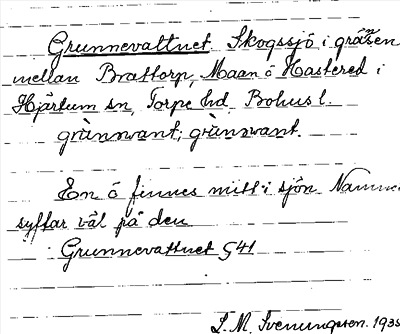 Grunnevattnet. Skogssjö i gränsen
mellan Brattorp, Maan o Hastered i
Hjärtum sn, Torpe hd, Bohusl.
grùnnvant; grùnnvant.
En ö finnes mitt i sjön. Namne
syftar väl på den
Grunnevattnet § 41
L. M. Svenungsson. 1935